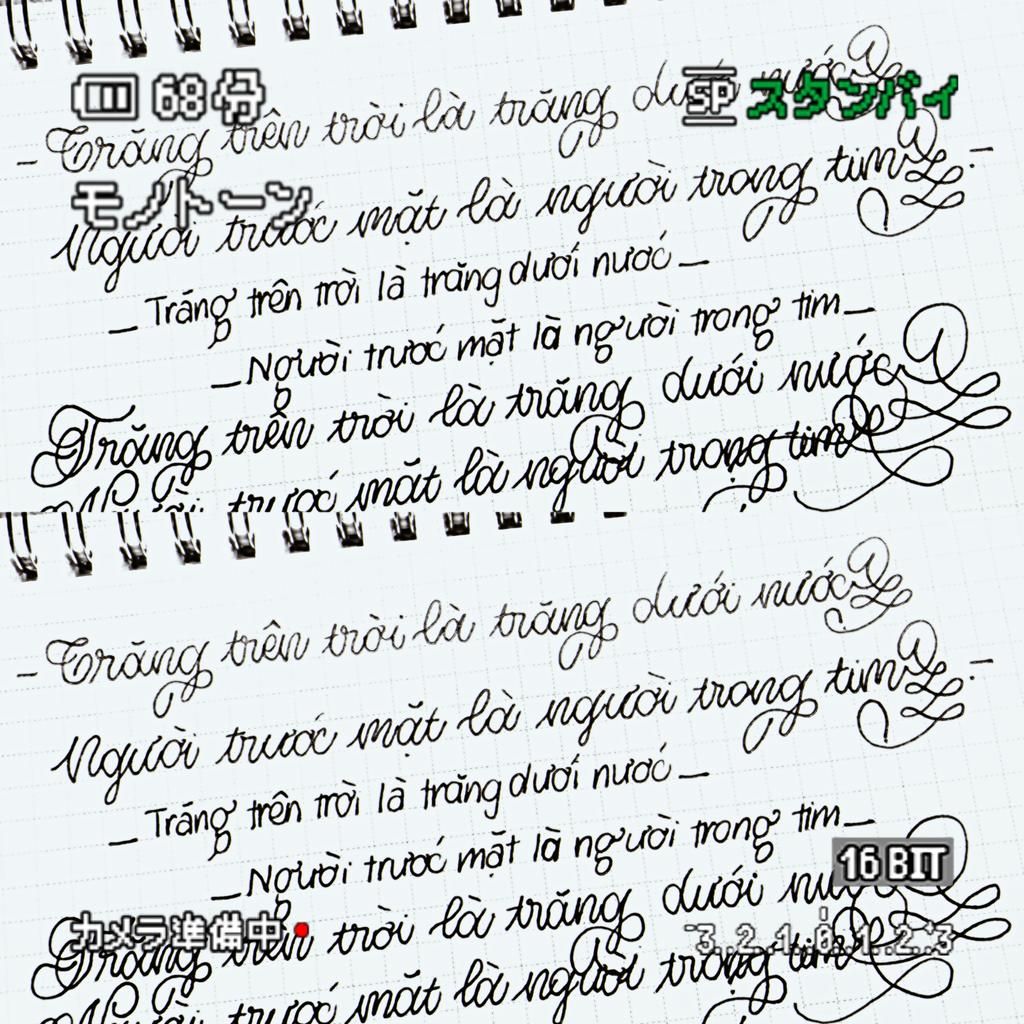 68分
SP スタンバイ
- Trăng trên trời là trăng dưới nước
モノトーン
Người trước mặt là người trong tim -
- Trăng trên trời là trăng dưới nước -
- Người trước mặt là người trong tim -
Trăng trên trời là trăng dưới nước
Người trước mặt là người trong tim
- Trăng trên trời là trăng dưới nước
Người trước mặt là người trong tim -
- Trăng trên trời là trăng dưới nước -
- Người trước mặt là người trong tim -
16 BIT
Trăng trên trời là trăng dưới nước
カメラ準備中
-3..2..1..0..1..2..+3
Người trước mặt là người trong tim